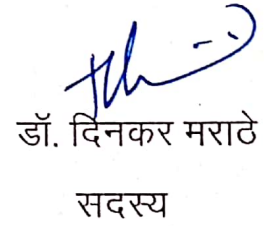 डॉ. दिनकर मराठे
सदस्य